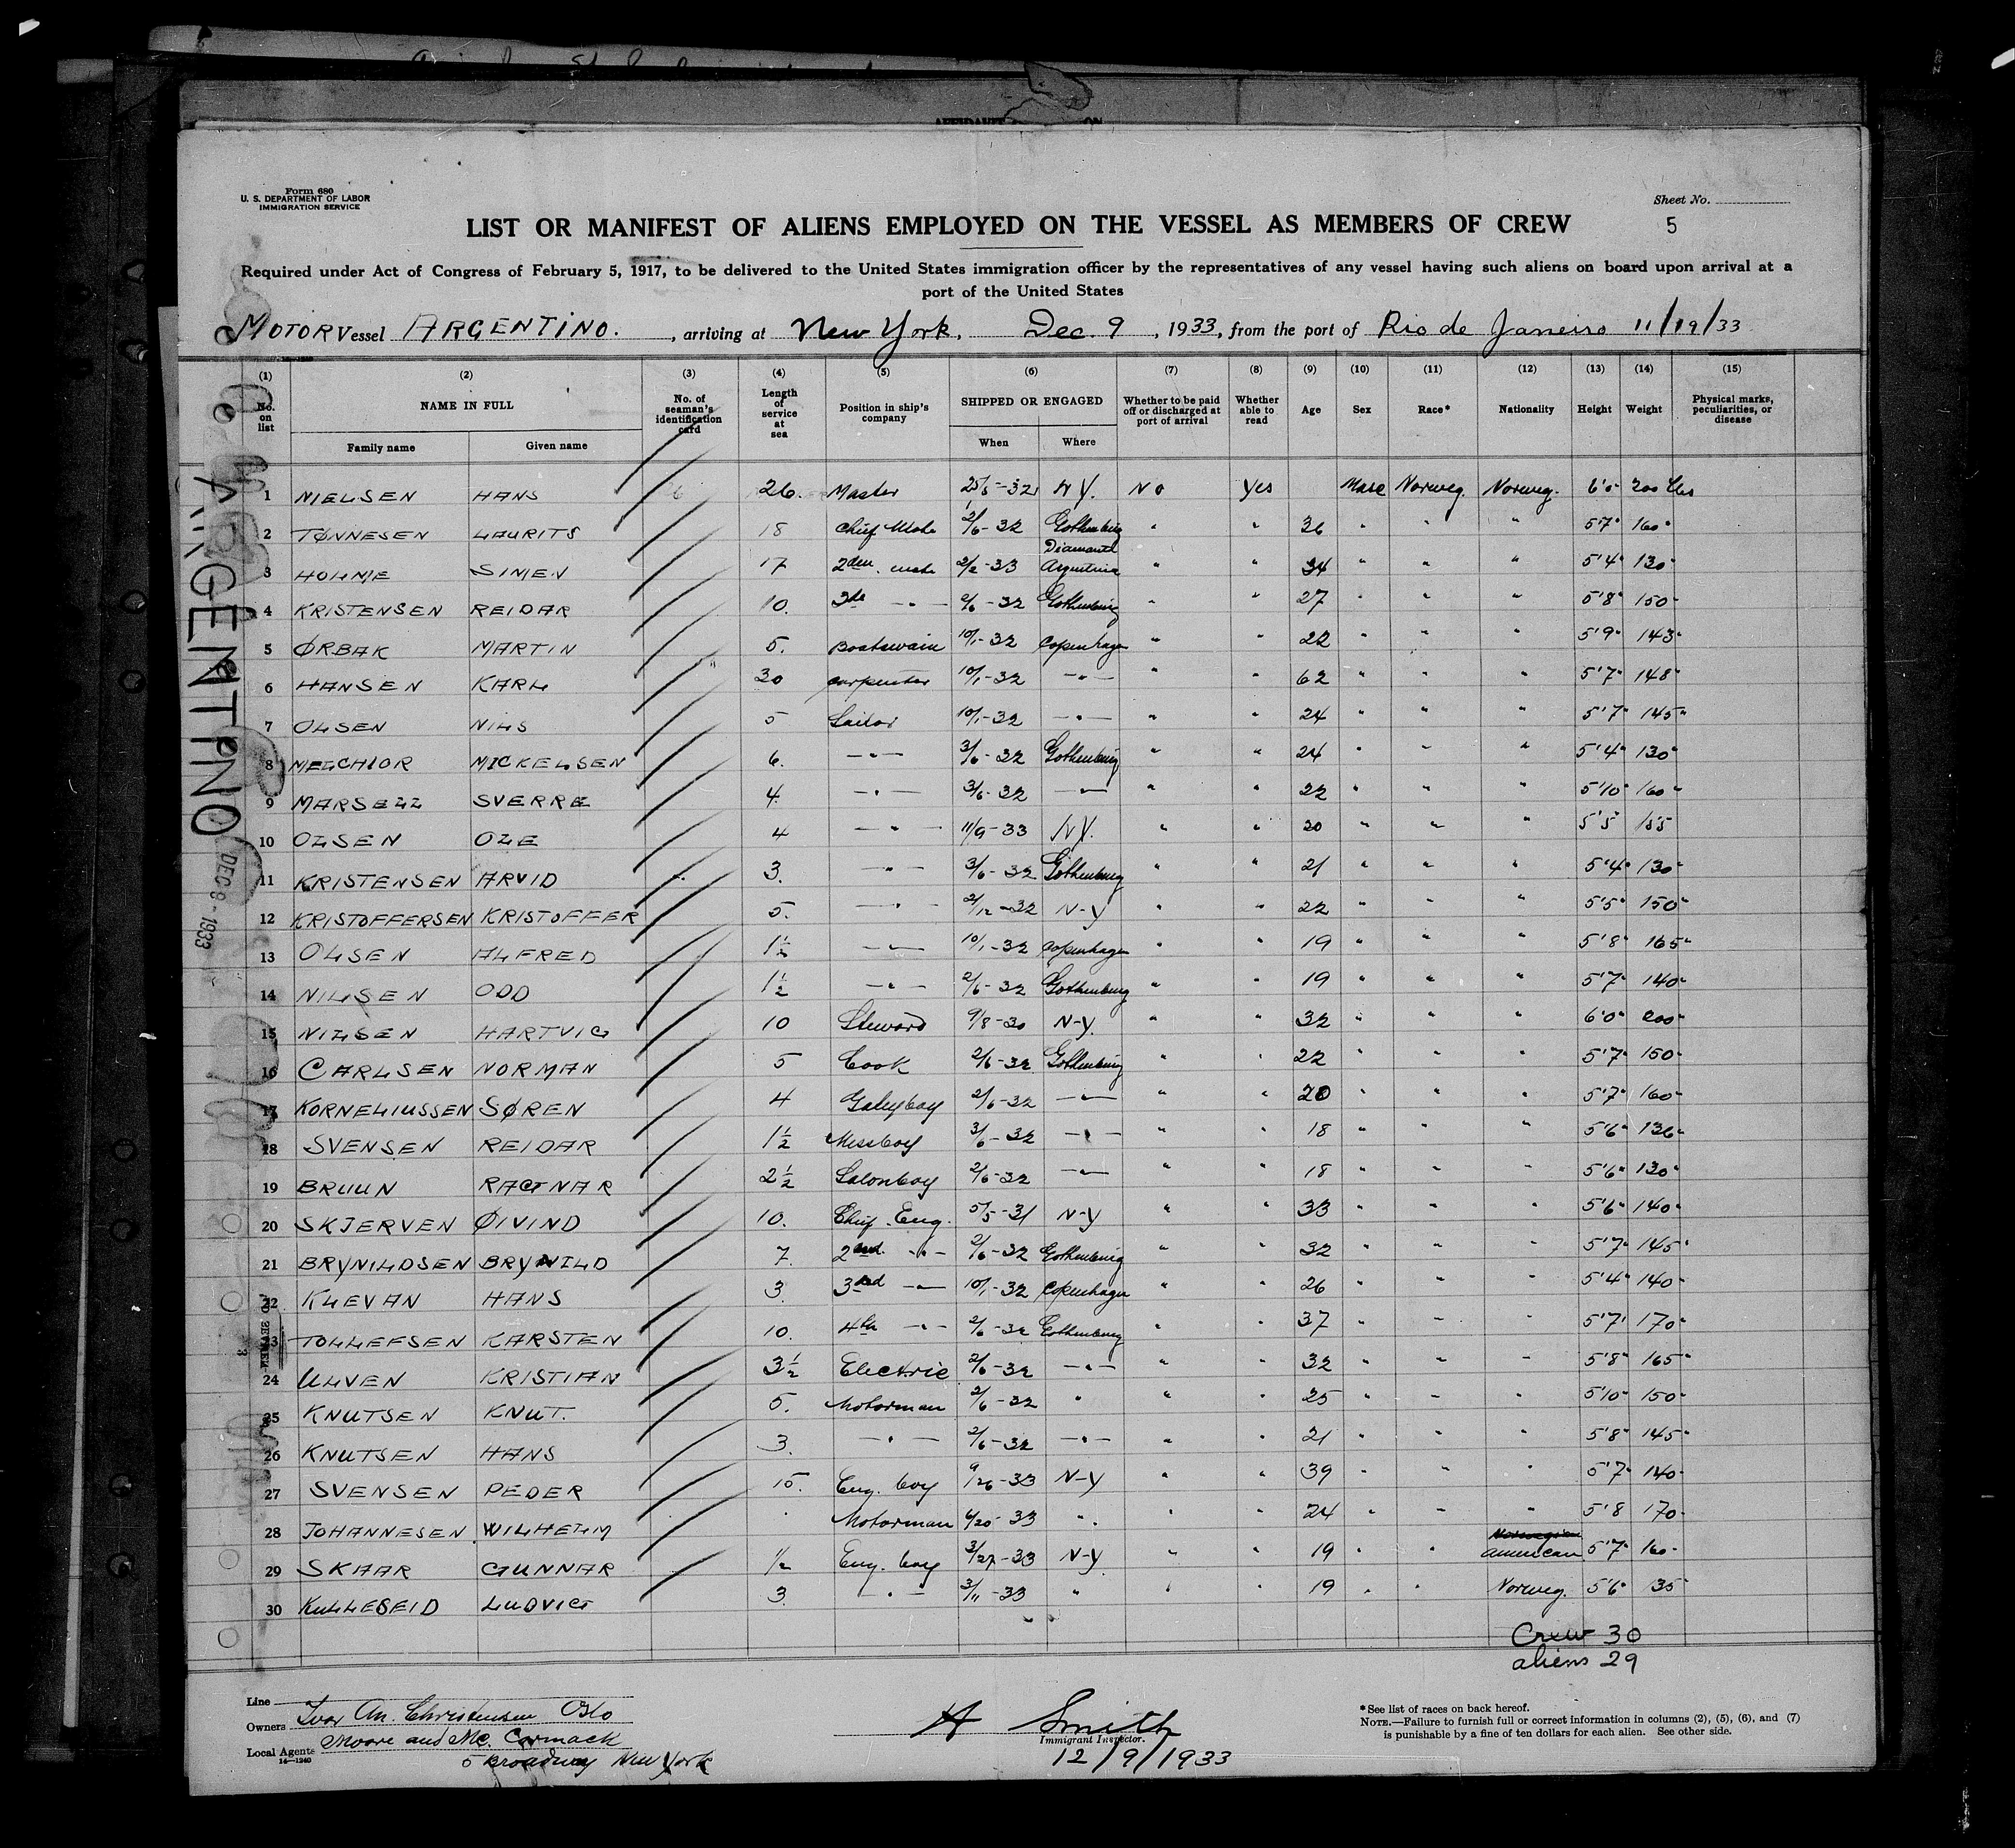 Form 680
U. S. DEPARTMENT OF LABOR
IMMIGRATION SERVICE
Sheet No.
5
LIST OR MANIFEST OF ALIENS EMPLOYED ON THE VESSEL AS MEMBERS OF CREW
Required under Act of Congress of February 5, 1917, to be delivered to the United States immigration officer by the representatives of any vessel having such aliens on board upon arrival at a
port of the United States
MOTOR Vessel ARGENTINO. , arriving at New York, Dec. 9 , 1933, from the port of Rio de Janeiro 11/19/33
(1) (2) (3) (4) (5) (6) (7) (8) (9) (10) (11) (12) (13) (14) (15)
No. on list NAME IN FULL Family name Given name No. of seaman's identification card Length of service at sea Position in ship's company SHIPPED OR ENGAGED When Where Whether to be paid off or discharged at port of arrival Whether able to read Age Sex Race* Nationality Height Weight Physical marks, peculiarities, or disease
1 NIELSEN HANS 26. Master 25/5-32 NY. No Yes Male Norweg. Norweg. 6'0" 200 lbs
2 TØNNESEN LAURITS 18 Chief Mate 2/6-32 Gothenburg " " 36 " " " 5'7" 160"
3 HOLME SIMEN 17 2den. mate 2/2-33 Argentina " " 34 " " " 5'4" 130"
4 KRISTENSEN REIDAR 10. 3de -"- 2/6-32 Gothenburg " " 27 " " " 5'8" 150"
5 ØRBAK MARTIN 5. Boatswain 10/1-32 Copenhagen " " 22 " " " 5'9" 143"
6 HANSEN KARL 30 carpenter 10/1-32 -"- " " 62 " " " 5'7" 148"
7 OLSEN NILS 5 Sailor 10/1-32 -"- " " 24 " " " 5'7" 145"
8 MELCHIOR MICKELSEN 6. -"- 3/6-32 Gothenburg " " 24 " " " 5'4" 130"
9 MARSELL SVERRE 4. -"- 3/6-32 -"- " " 22 " " " 5'10" 160"
10 OLSEN OLE 4 -"- 11/9-33 NY. " " 20 " " " 5'5" 155
11 KRISTENSEN ARVID 3. -"- 3/6-32 Gothenburg " " 21 " " " 5'4" 130"
12 KRISTOFFERSEN KRISTOFFER 5. -"- 2/12-32 N-Y " " 22 " " " 5'5" 150"
13 OLSEN ALFRED 1½ -"- 10/1-32 Copenhagen " " 19 " " " 5'8" 165"
14 NILSEN ODD 1½ -"- 2/6-32 Gothenburg " " 19 " " " 5'7" 140"
15 NILSEN HARTVIG 10 Steward 9/8-30 N-Y. " " 32 " " " 6'0" 200"
16 CARLSEN NORMAN 5 Cook 2/6-32 Gothenburg " " 22 " " " 5'7" 150"
17 KORNELIUSSEN SØREN 4 Galeyboy 2/6-32 -"- " " 20 " " " 5'7" 160"
18 SVENSEN REIDAR 1½ Messboy 3/6-32 -"- " " 18 " " " 5'6" 136"
19 BRUUN RAGNAR 2½ Salonboy 2/6-32 -"- " " 18 " " " 5'6" 130"
20 SKJERVEN ØIVIND 10. Chief. Eng. 5/5-31 N-Y " " 33 " " " 5'6" 140"
21 BRYNILDSEN BRYNILD 7. 2nd. -"- 2/6-32 Gothenburg " " 32 " " " 5'7" 145"
22 KLEVAN HANS 3. 3rd -"- 10/1-32 Copenhagen " " 26 " " " 5'4" 140"
23 TOLLEFSEN KARSTEN 10. 4th -"- 2/6-32 Gothenburg " " 37 " " " 5'7" 170"
24 ULVEN KRISTIAN 3½ Electric 2/6-32 -"- " " 32 " " " 5'8" 165"
25 KNUTSEN KNUT. 5. Motorman 2/6-32 " " " 25 " " " 5'10" 150"
26 KNUTSEN HANS 3. -"- 2/6-32 -"- " " 21 " " " 5'8" 145"
27 SVENSEN PEDER 15. Eng. boy 9/26-33 N-Y " " 39 " " " 5'7" 140"
28 JOHANNESEN WILHELM " Motorman 6/20-33 ". " " 24 " " " 5'8 170"
29 SKAAR GUNNAR 1/2 Eng. boy 3/27-33 N-Y " " 19 " " Norwegian American 5'7" 160"
30 KULLESEID LUDVIG 3. -"- 3/11-33 " " " 19 " " Norweg. 5'6" 135"
Crew 30
aliens 29
ARGENTINO
DEC 9 - 1933
Line
Owners Ivar An. Christensen Oslo
Local Agents Moore and Mc. Cormack
14-1240
5 Broadway New York
A Smith
Immigrant Inspector.
12/9/1933
*See list of races on back hereof.
NOTE.—Failure to furnish full or correct information in columns (2), (5), (6), and (7)
is punishable by a fine of ten dollars for each alien. See other side.